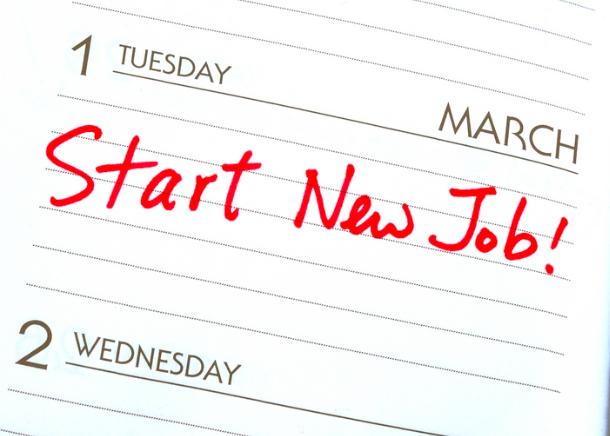 1 TUESDAY
MARCH
Start New Job!
2 WEDNESDAY